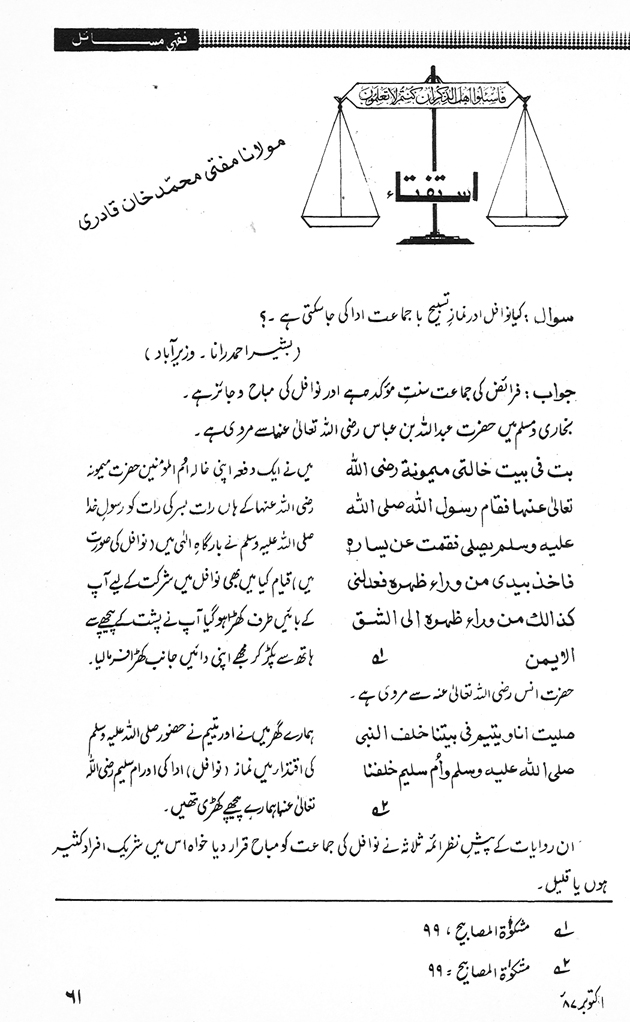 فقہی مسائل
فاسئلوا اهل الذكر ان كنتم لا تعلمون
استفتاء
مولانا مفتی محمّد خان قادری
سوال : کیا نوافل اور نمازِ تسبیح با جماعت ادا کی جا سکتی ہے ۔؟
( بشیر احمد رانا ۔ وزیرآباد )
جواب : فرائض کی جماعت سنتِ مؤکدہ ہے اور نوافل کی مباح و جائز ہے ۔
بخاری و مسلم میں حضرت عبداللہ بن عباس رضی اللہ تعالیٰ عنہما سے مروی ہے ۔
بت فی بیت خالتی میمونة رضی اللہ
تعالیٰ عنہا فقام رسول اللہ صلی اللہ
علیہ وسلم یصلی فقمت عن یسارہ
فاخذ بیدی من وراء ظہرہ فعدلنی
کذالک من وراء ظہرہ الی الشق
الایمن ۱ے
میں نے ایک دفعہ اپنی خالہ ام المؤمنین حضرت میمونہ
رضی اللہ عنہا کے ہاں رات بسر کی رات کو رسولِ خدا
صلی اللہ علیہ وسلم نے بارگاہِ الٰہی میں (نوافل کی صورت
میں) قیام کیا میں بھی نوافل میں شرکت کے لیے آپ
کے بائیں طرف کھڑا ہو گیا آپ نے پشت کے پیچھے سے
ہاتھ سے پکڑ کر مجھے اپنی دائیں جانب کھڑا فرما لیا۔
حضرت انس رضی اللہ تعالیٰ عنہ سے مروی ہے ۔
صلیت انا و یتیم فی بیتنا خلف النبی
صلی اللہ علیہ وسلم وأم سلیم خلفنا
۲ے
ہمارے گھر میں نے اور یتیم نے حضور صلی اللہ علیہ وسلم
کی اقتدار میں نماز (نوافل) ادا کی اور ام سلیم رضی اللہ
تعالیٰ عنہا ہمارے پیچھے کھڑی تھیں ۔
ان روایات کے پیشِ نظر ائمہ ثلاثہ نے نوافل کی جماعت کو مباح قرار دیا خواہ اس میں شریک افراد کثیر
ہوں یا قلیل ۔
۱ے مشکوٰۃ المصابیح ، ۹۹
۲ے مشکوٰۃ المصابیح = ۹۹
اکتوبر ۸۷ء
۶۱